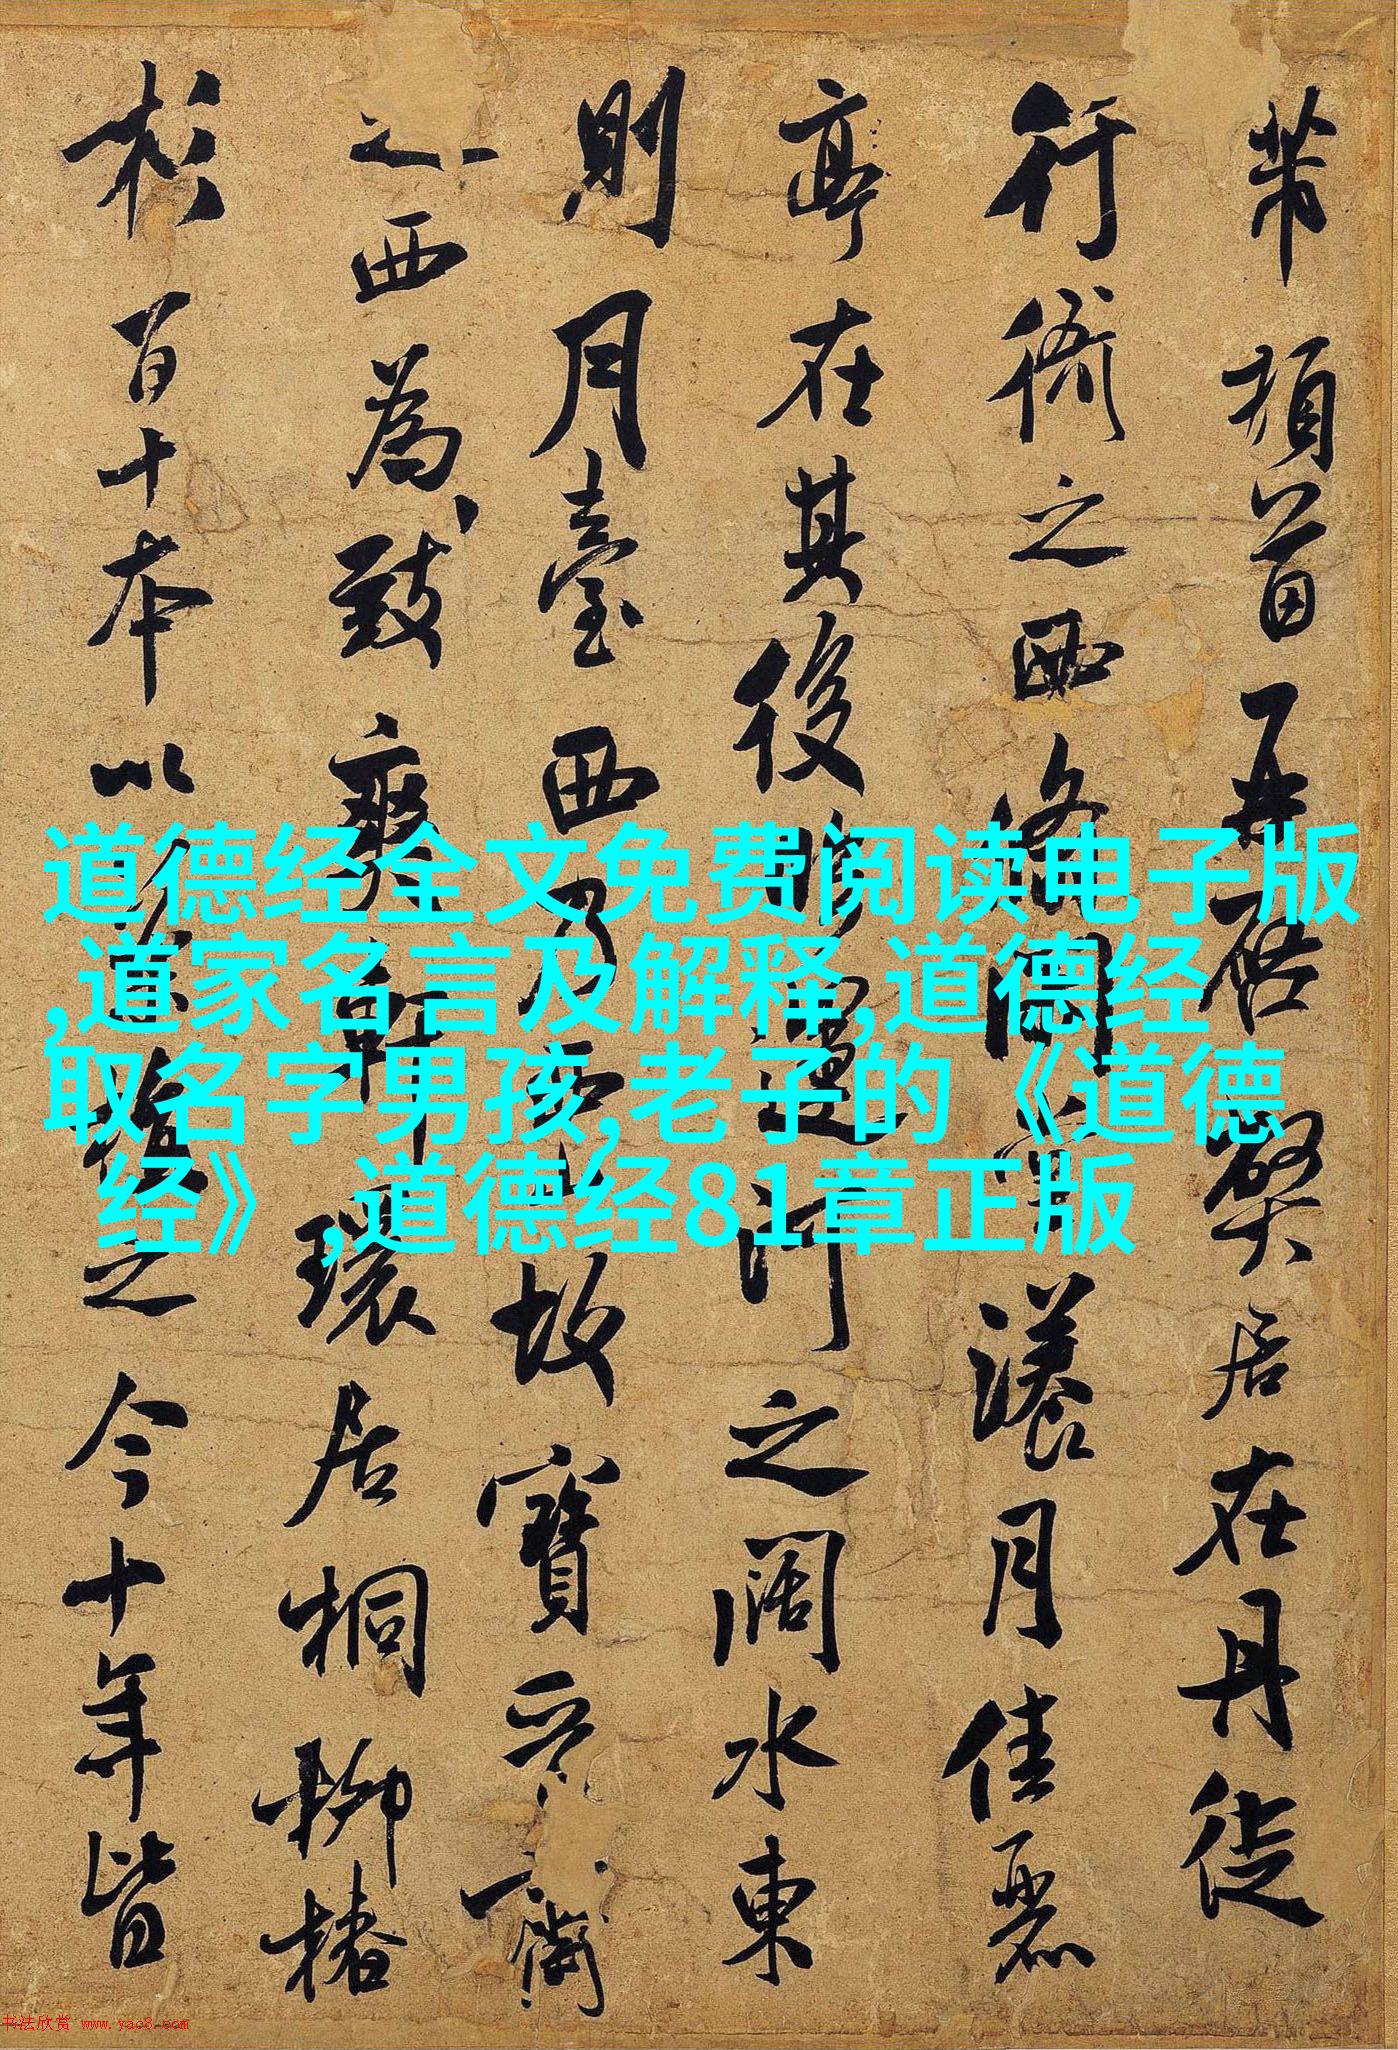 芾頓首再啓弊居在丹徒
行衙之西翛閒堂漾月佳麗
亭在其後臨運河之闊水東
則月臺西乃西山故寶晉齋
之西為致爽軒環居桐柳椿
杉百十本以藥植之今十年皆
道德经全文免费阅读电子版
,道家名言及解释,道德经
取名字男孩,老子的《道德
经》,道德经81章正版
书法欣赏 www.yac8.com